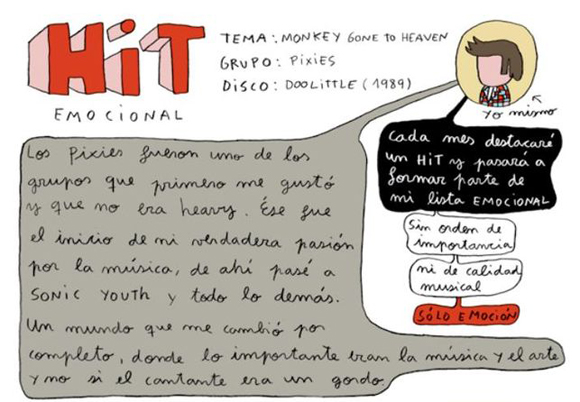 HiT
EMOCIONAL
TEMA: MONKEY GONE TO HEAVEN
GRUPO: PIXIES
DISCO: DOOLITTLE (1989)
yo mismo
Cada mes destacaré
un HiT y pasará a
formar parte de
mi lista EMOCIONAL
Sin orden de
importancia
ni de calidad
musical
SÓLO EMOCIÓN
Los Pixies fueron uno de los
grupos que primero me gustó
y que no era heavy. Ése fue
el inicio de mi verdadera pasión
por la música, de ahí pasé a
SONIC YOUTH y todo lo demás.
Un mundo que me cambió por
completo, donde lo importante eran la música y el arte
y no si el cantante era un gordo.